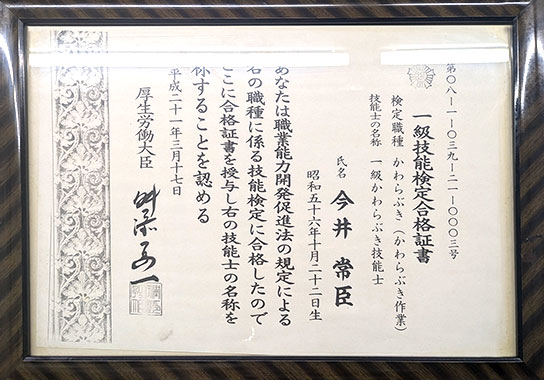 第〇八ー一ー〇三九ー二一ー〇〇〇三号
一級技能検定合格証書
検定職種 かわらぶき（かわらぶき作業）
技能士の名称 一級かわらぶき技能士
氏名 今井常臣
昭和五十六年十月二十二日生
あなたは職業能力開発促進法の規定による
右の職種に係る技能検定に合格したので
ここに合格証書を授与し右の技能士の名称を
称することを認める
平成二十一年三月十七日
厚生労働大臣 舛添要一